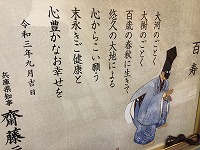 百寿
大河のごとく
大樹のごとく
百歳の春秋に生きて
悠久の大地による
心からこい願う
末永きご健康と
心豊かなお幸せを
令和三年九月吉日
兵庫県知事
齋藤元